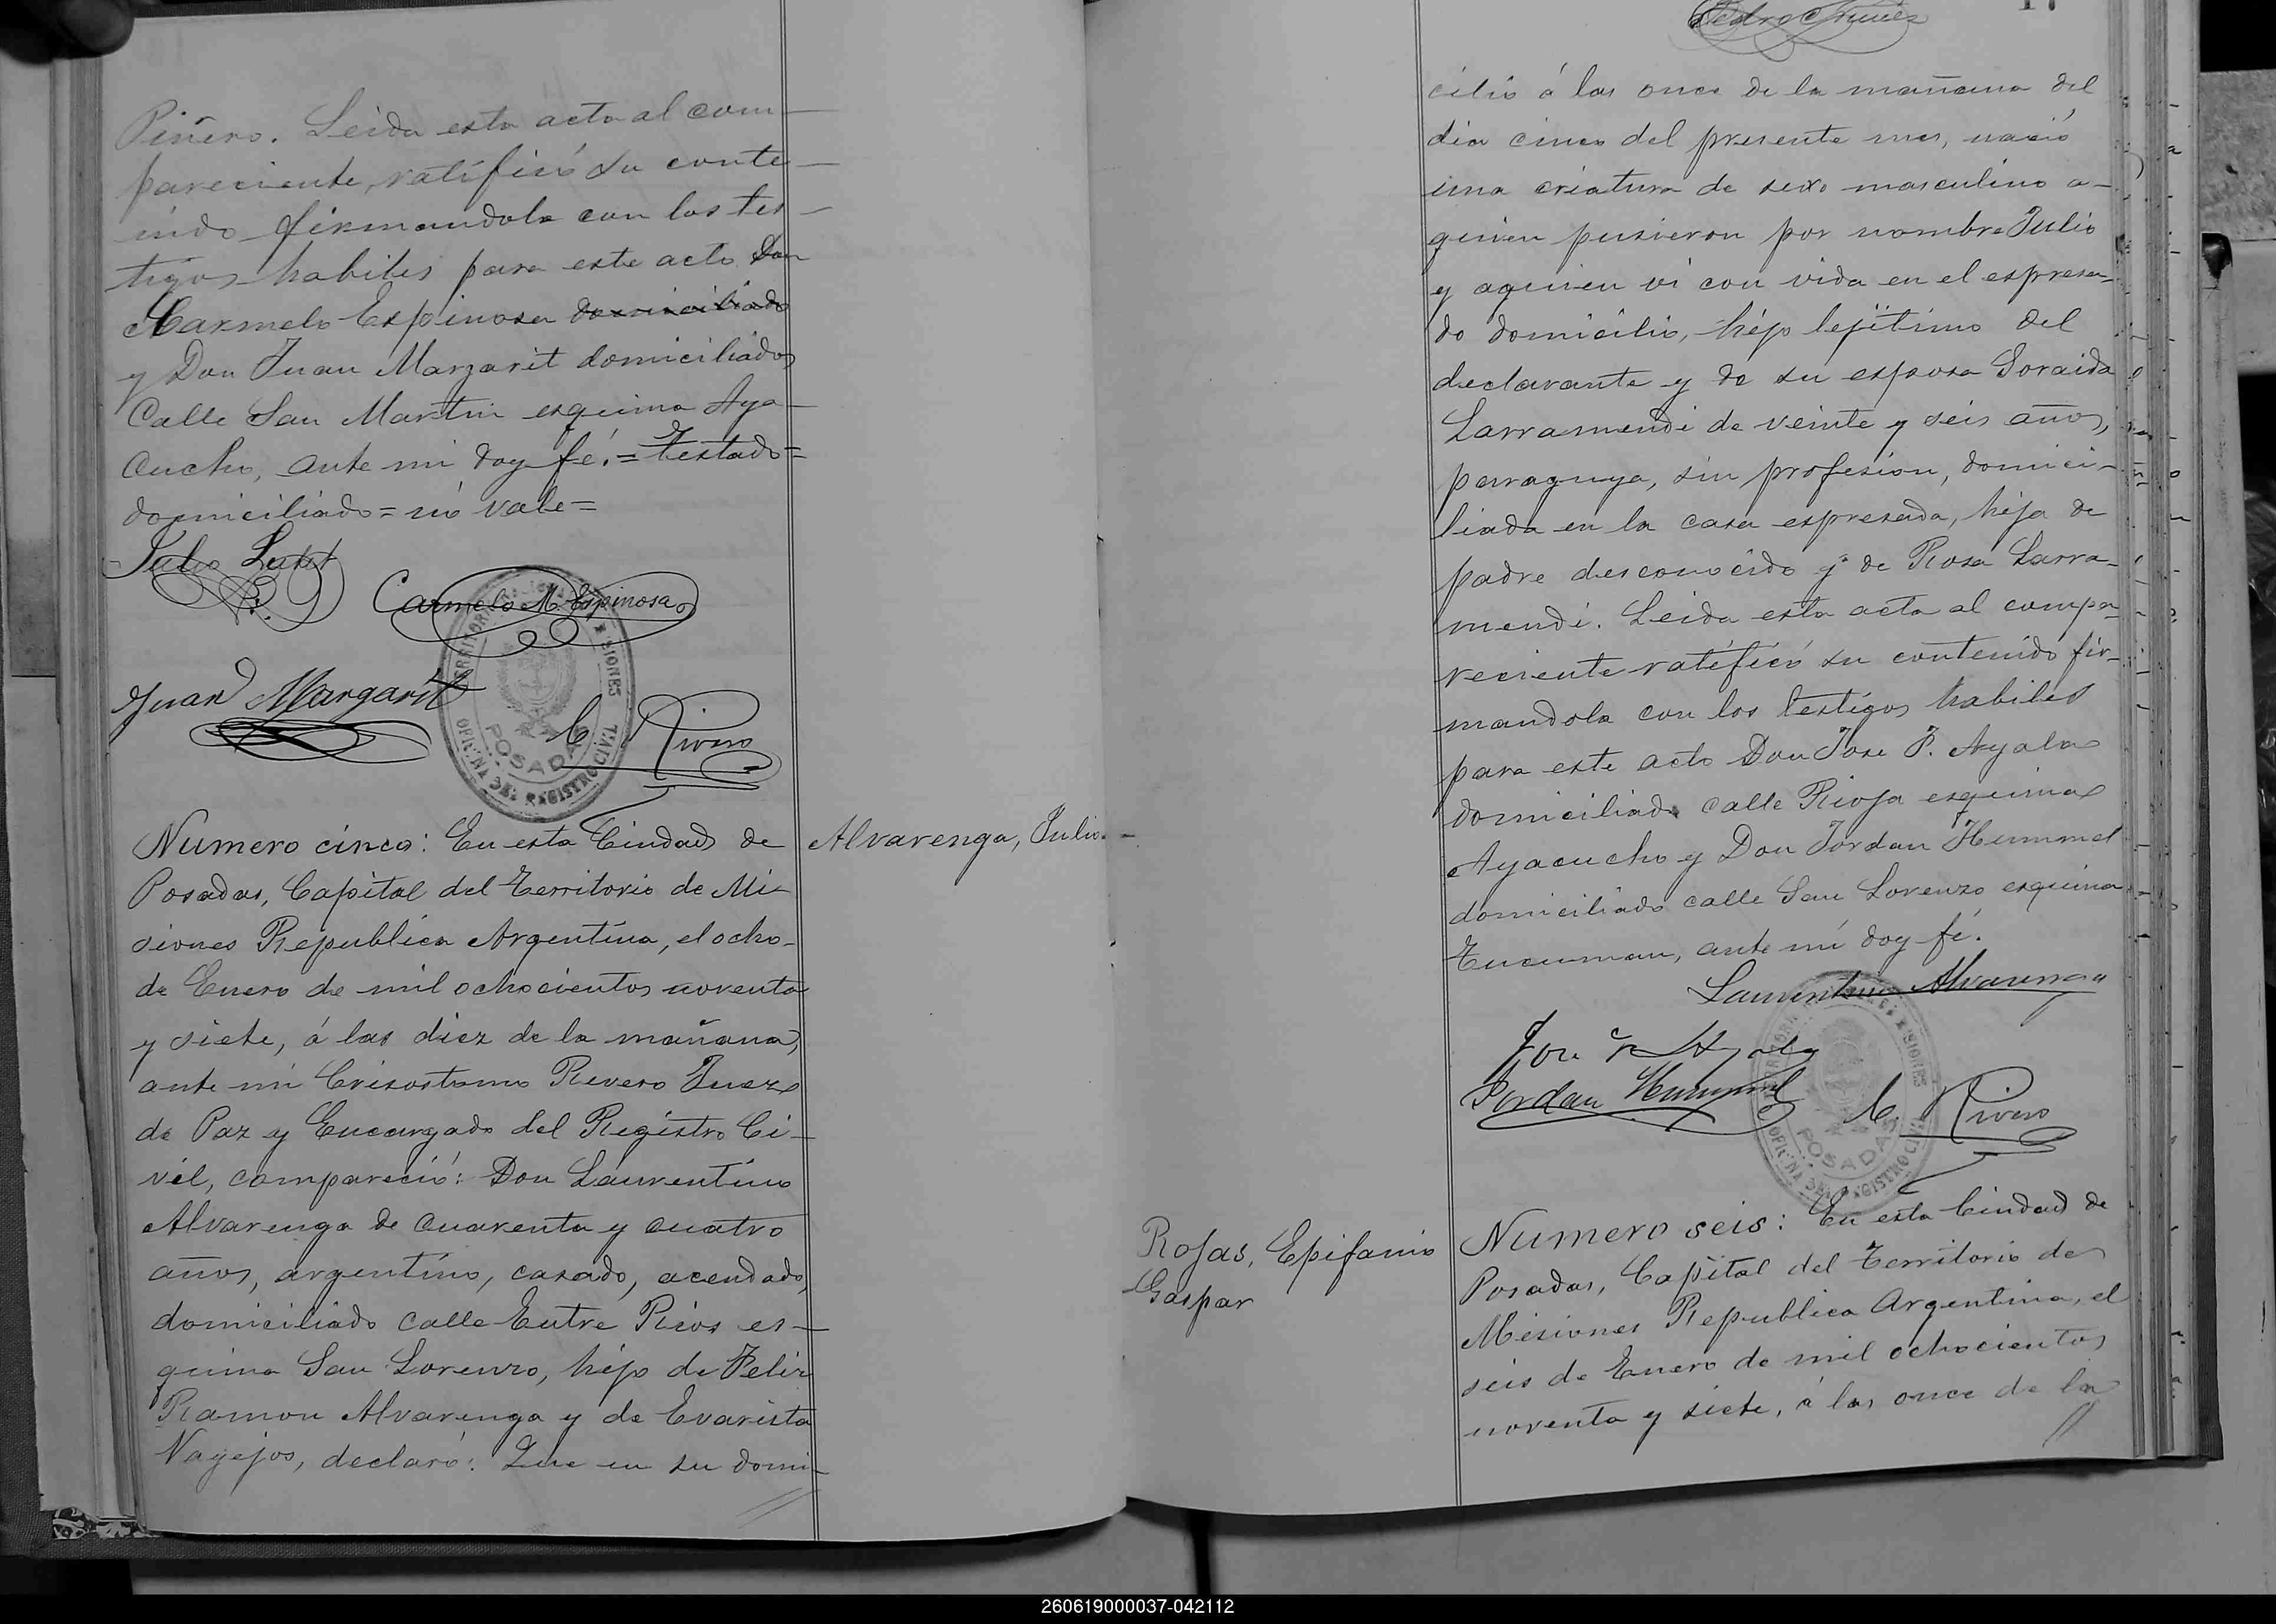 Piñero. Leida esta acta al com-
pareciente, ratificó su conte-
nido firmandola con los tes-
tigos habiles para este acto Don
Carmelo Espinosa domiciliado
y Don Juan Margarit domiciliados
Calle San Martin esquina Aya-
cucho, ante mi doy fé.=Testado=
domiciliado=nó vale=
Julio
Carmelo M. Espinosa
Juan Margarit
C. Rivero
POSADAS
OFICINA DEL REGISTRO CIVIL
Numero cinco: En esta Ciudad de
Posadas, Capital del Territorio de Mi-
siones Republica Argentina, el ocho
de Enero de mil ochocientos noventa
y siete, á las diez de la mañana,
ante mi Crisostomo Rivero Juez
de Paz y Encargado del Registro Ci-
vil, compareció: Don Laurentino
Alvarenga de cuarenta y cuatro
años, argentino, casado, acendado,
domiciliado calle Entre Rios es-
quina San Lorenzo, hijo de Felix
Ramon Alvarenga y de Evarista
declaró: Que en su domi-
Alvarenga, Julio.-
17
cilio á las once de la mañana del
dia cinco del presente mes, nació
una criatura de sexo masculino a-
quien pusieron por nombre Julio
y aquien vi con vida en el espresa-
do domicilio, hijo lejitimo del
declarante y de su esposa Soraida
Larramendi de veinte y seis años,
paraguya, sin profesion, domici-
liada en la casa espresada, hija de
padre desconocido y de Rosa Larra-
mendi. Leida esta acta al compa-
reciente ratificó su contenido fir-
mandola con los testigos habiles
para este acto Don Jose F. Ayala
domiciliado calle Rioja esquina
Ayacucho y Don Jordan Hummel
domiciliado calle San Lorenzo esquina
Tucuman, ante mi doy fé.
Laurentino Alvarenga
Jose F. Ayala
Jordan Hummel
C. Rivero
POSADAS
OFICINA DEL REGISTRO CIVIL
Rojas, Epifanio
Gaspar
Numero seis: En esta Ciudad de
Posadas, Capital del Territorio de
Misiones Republica Argentina, el
seis de Enero de mil ochocientos
noventa y siete, á las once de la
260619000037-042112